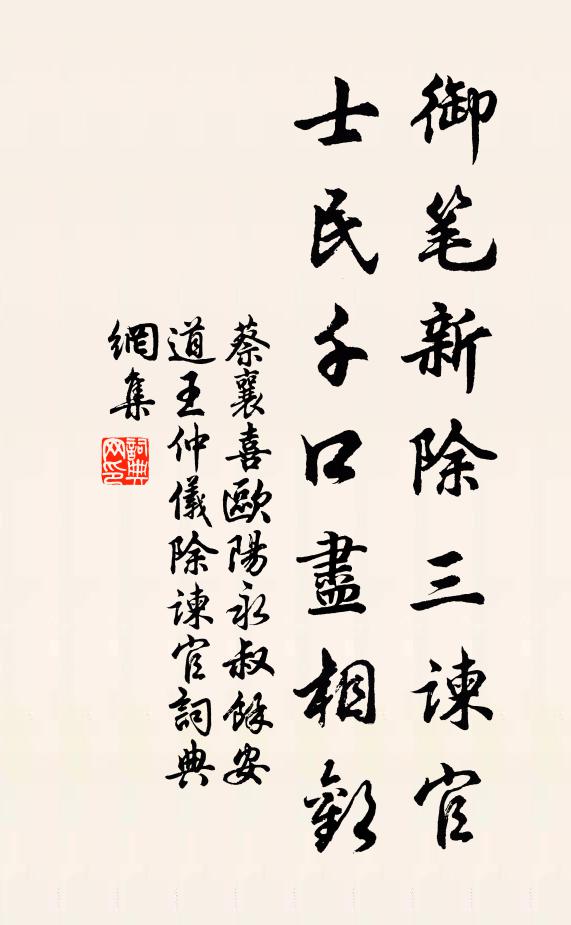 御笔新除三諫官
士民千口盡相歡
蔡襄喜歐陽永叔餘安
道王仲儀除諫官詞典
網集
詞典
网印